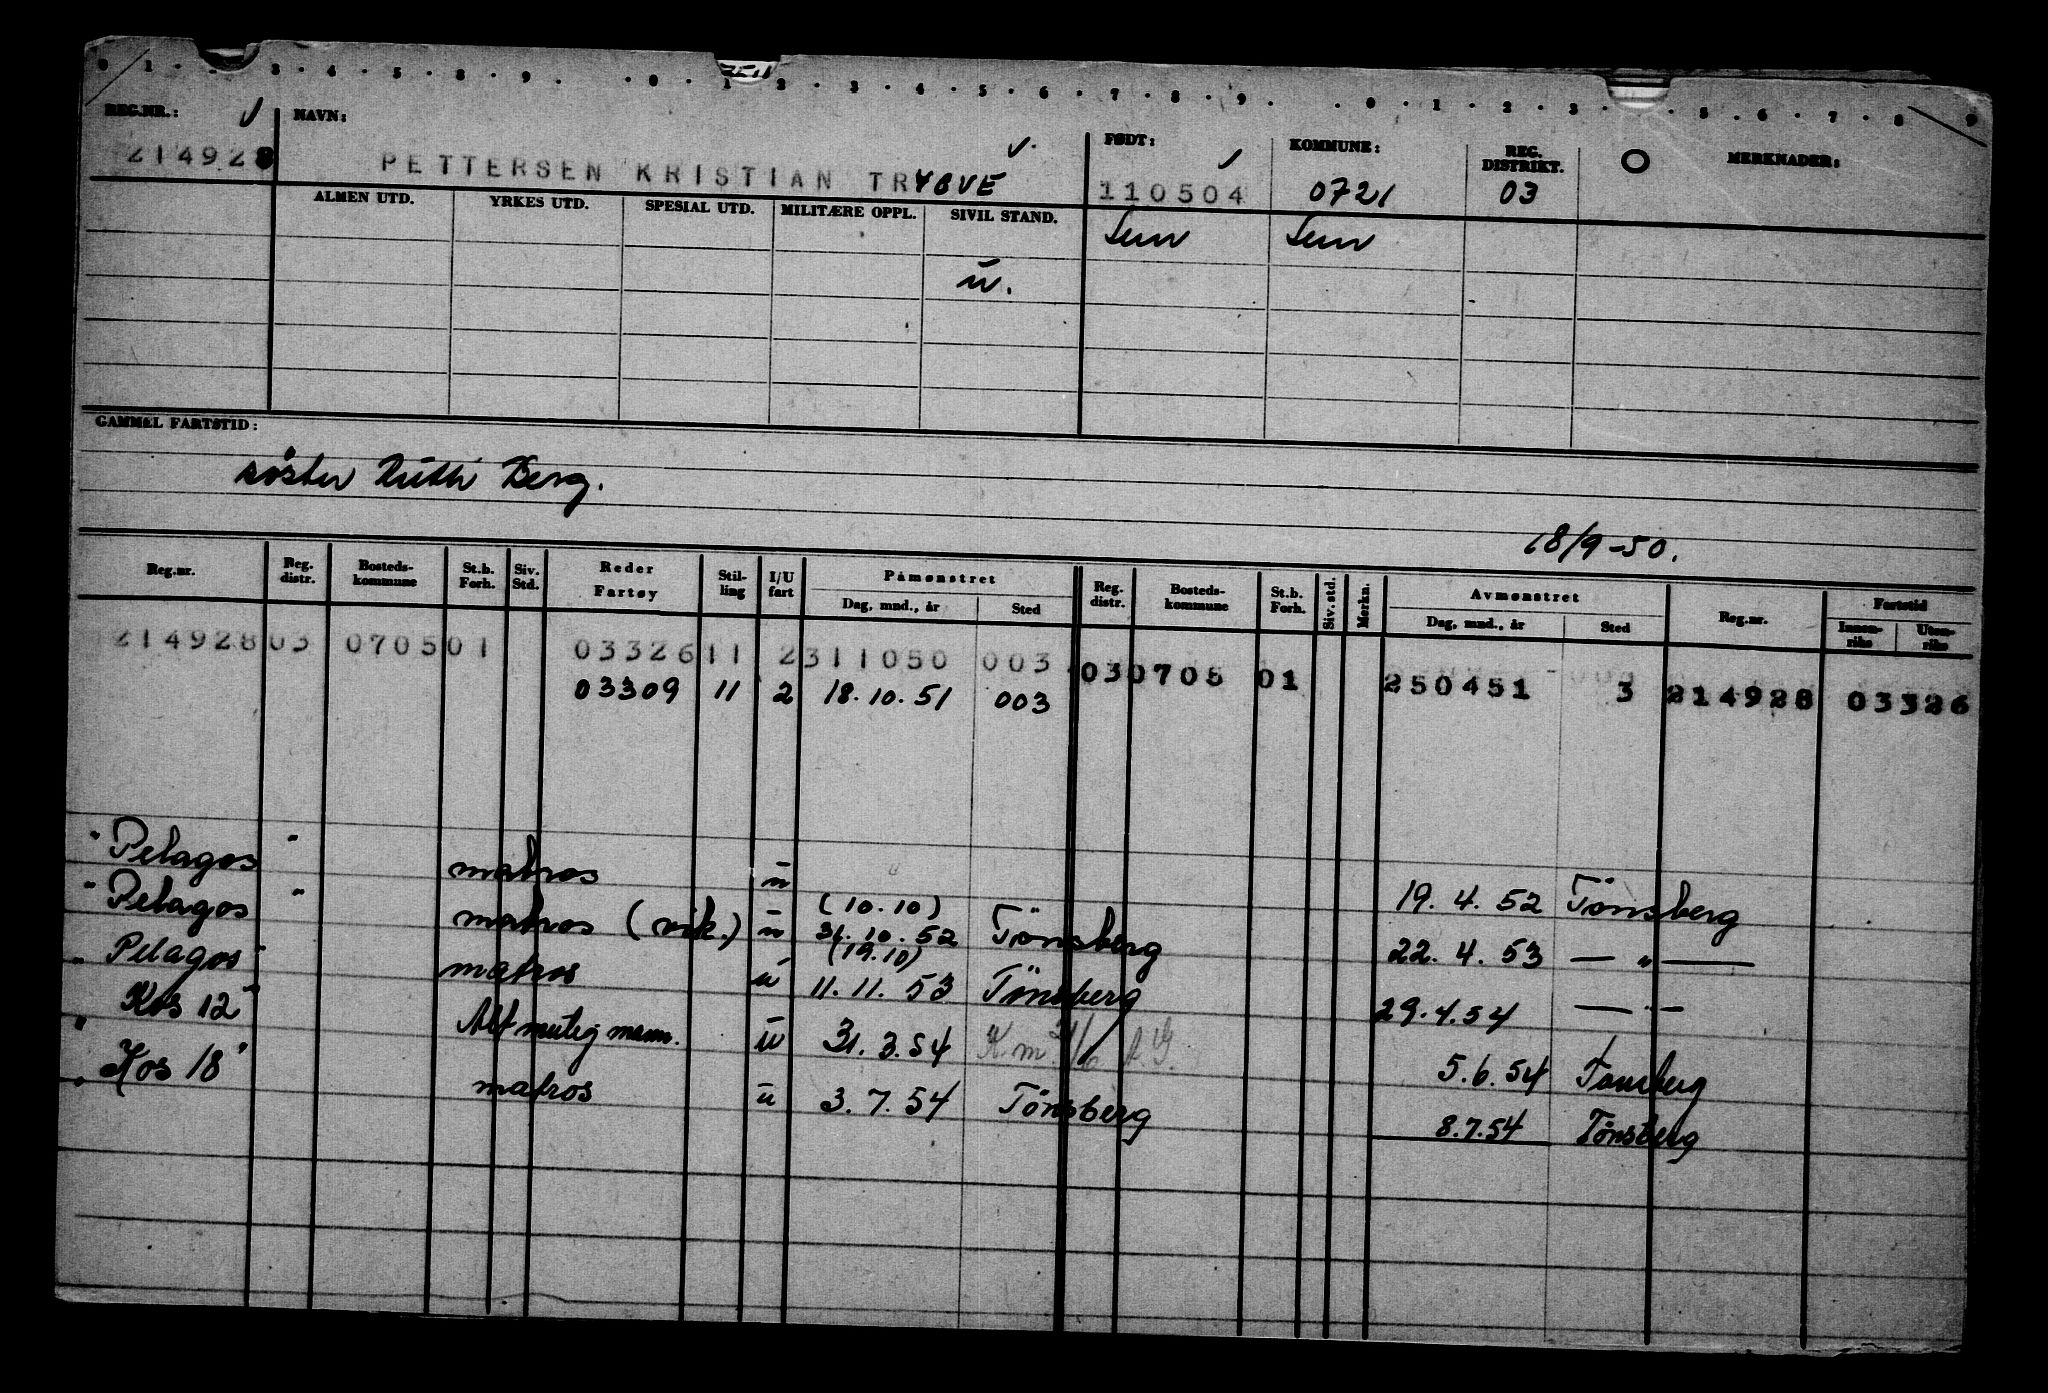 0 1 . 3 . 4 . 5 . 8 . 9 . . 0 . 1 2 . 3 . 4 . 5 . 6 . 7 . 8 . 9 . . 0 . 1 . 2 . 3 . . 5 . 6 . 7 . 8 9
REG.NR.: NAVN: FØDT: KOMMUNE: REG. DISTRIKT. O MERKNADER:
214928 PETTERSEN KRISTIAN TRYGVE 110504 0721 03
ALMEN UTD. YRKES UTD. SPESIAL UTD. MILITÆRE OPPL. SIVIL STAND. Sem Sem
u.
GAMMEL FARTSTID:
søster Ruth Berg.
18/9-50.
Reg.nr. Reg. distr. Bosteds-kommune St.b. Forh. Siv. Std. Reder Fartøy Stil-ling I/U fart Påmønstret Dag, mnd., år Sted Reg. distr. Bosteds-kommune St.b. Forh. Siv. std. Merkn. Avmønstret Dag, mnd., år Sted Reg.nr. Fartstid Innen-riks Uten-riks
214928 03 0705 01 03326 11 2 311050 003 03 0705 01 250451 3 214928 03326
03309 11 2 18.10.51 003
"Pelagos" matros u 19.4.52 Tönsberg
(10.10)
"Pelagos" matros (vik.) u 31.10.52 Tönsberg 22.4.53 — " —
(19.10)
"Pelagos" matros u 11.11.53 Tönsberg 29.4.54 — " —
"Kos 12" Alt mulig mann. u 31.3.54 5.6.54 Tønsberg
"Kos 18" matros u 3.7.54 Tönsberg 8.7.54 Tönsberg